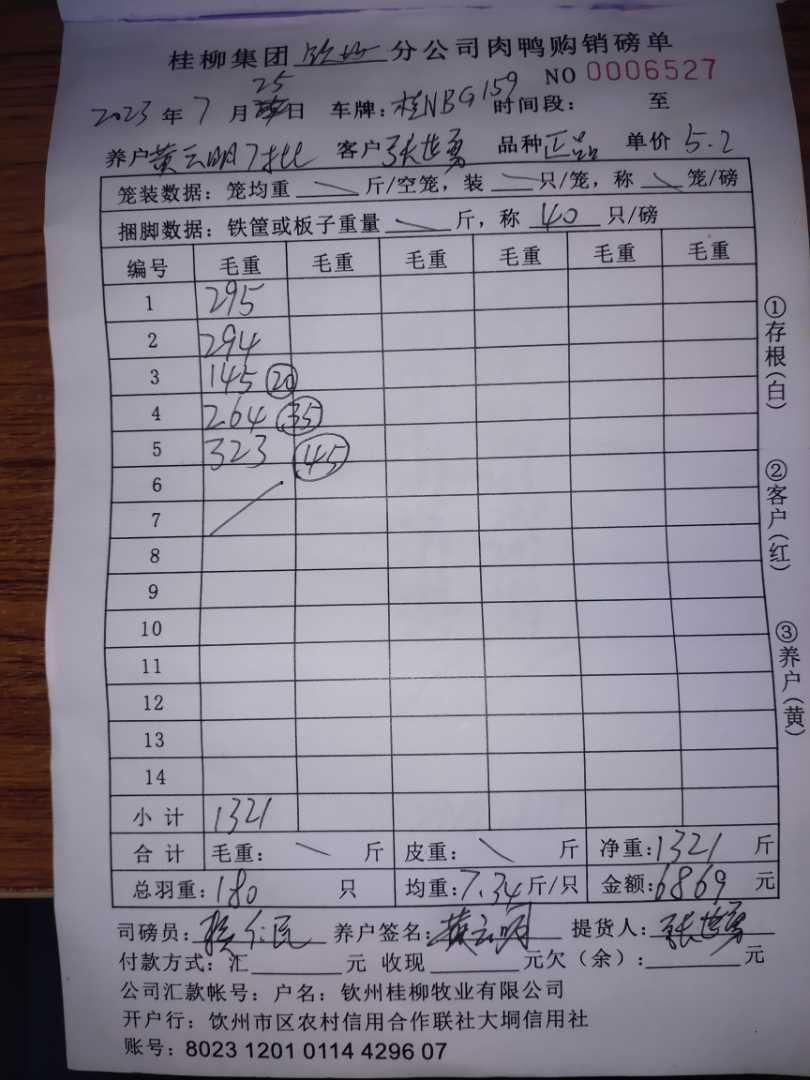 桂柳集团 钦州 分公司肉鸭购销磅单
NO 0006527
2023年7月25日 车牌:桂NBG159 时间段: 至
养户黄云明7批 客户张世勇 品种正品 单价5.2
笼装数据:笼均重 斤/空笼,装 只/笼,称 笼/磅
捆脚数据:铁筐或板子重量 斤,称 40 只/磅
编号 毛重 毛重 毛重 毛重 毛重 毛重
1 295
2 294
3 145 20
4 264 35
5 323 45
6
7
8
9
10
11
12
13
14
小计 1321
合计 毛重: 斤 皮重: 斤 净重:1321 斤
总羽重:180 只 均重:7.34斤/只 金额:6869 元
司磅员: 养户签名:黄云明 提货人:张世勇
付款方式:汇 元 收现 元欠(余): 元
公司汇款帐号:户名:钦州桂柳牧业有限公司
开户行:钦州市区农村信用合作联社大垌信用社
账号:8023 1201 0114 4296 07
①存根(白)
②客户(红)
③养户(黄)